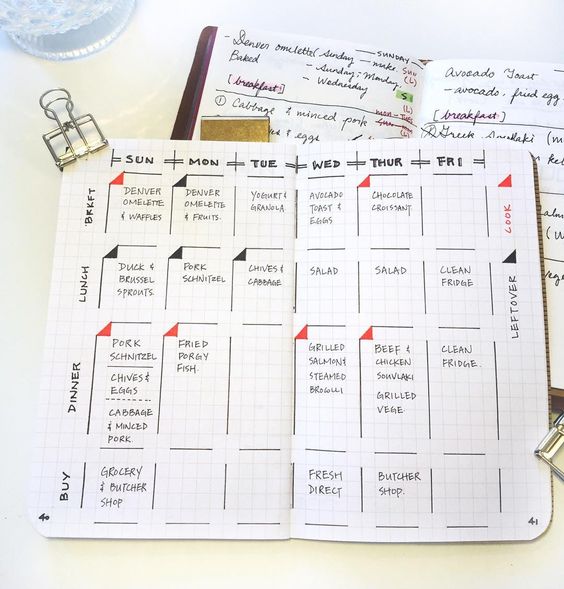 - Denver omelette (Sunday - make SUN
SUNDAY
Baked - Sunday; Monday, (L)
- Wednesday
[breakfast]
S
① Cabbage & minced pork mon - Tues
(L)
& eggs
Avocado Toast
- avocado, fried egg
[breakfast]
SUN MON TUE WED THUR FRI
BRKFT
DENVER
OMELETTE
& WAFFLES
DENVER
OMELETTE
& FRUITS.
YOGURT &
GRANOLA.
AVOCADO
TOAST &
EGGS
CHOCOLATE
CROISSANT
COOK
LUNCH
DUCK &
BRUSSEL
SPROUTS.
PORK
SCHNITZEL
CHIVES &
CABBAGE
SALAD
SALAD
CLEAN
FRIDGE
LEFTOVER
DINNER
PORK
SCHNITZEL
CHIVES &
EGGS
CABBAGE
& MINCED
PORK.
FRIED
PORGY
FISH.
GRILLED
SALMON &
STEAMED
BROCOLLI
BEEF &
CHICKEN
SOUVLAKI
GRILLED
VEGE.
CLEAN
FRIDGE.
BUY
GROCERY
& BUTCHER
SHOP
FRESH
DIRECT
BUTCHER
SHOP.
40
41